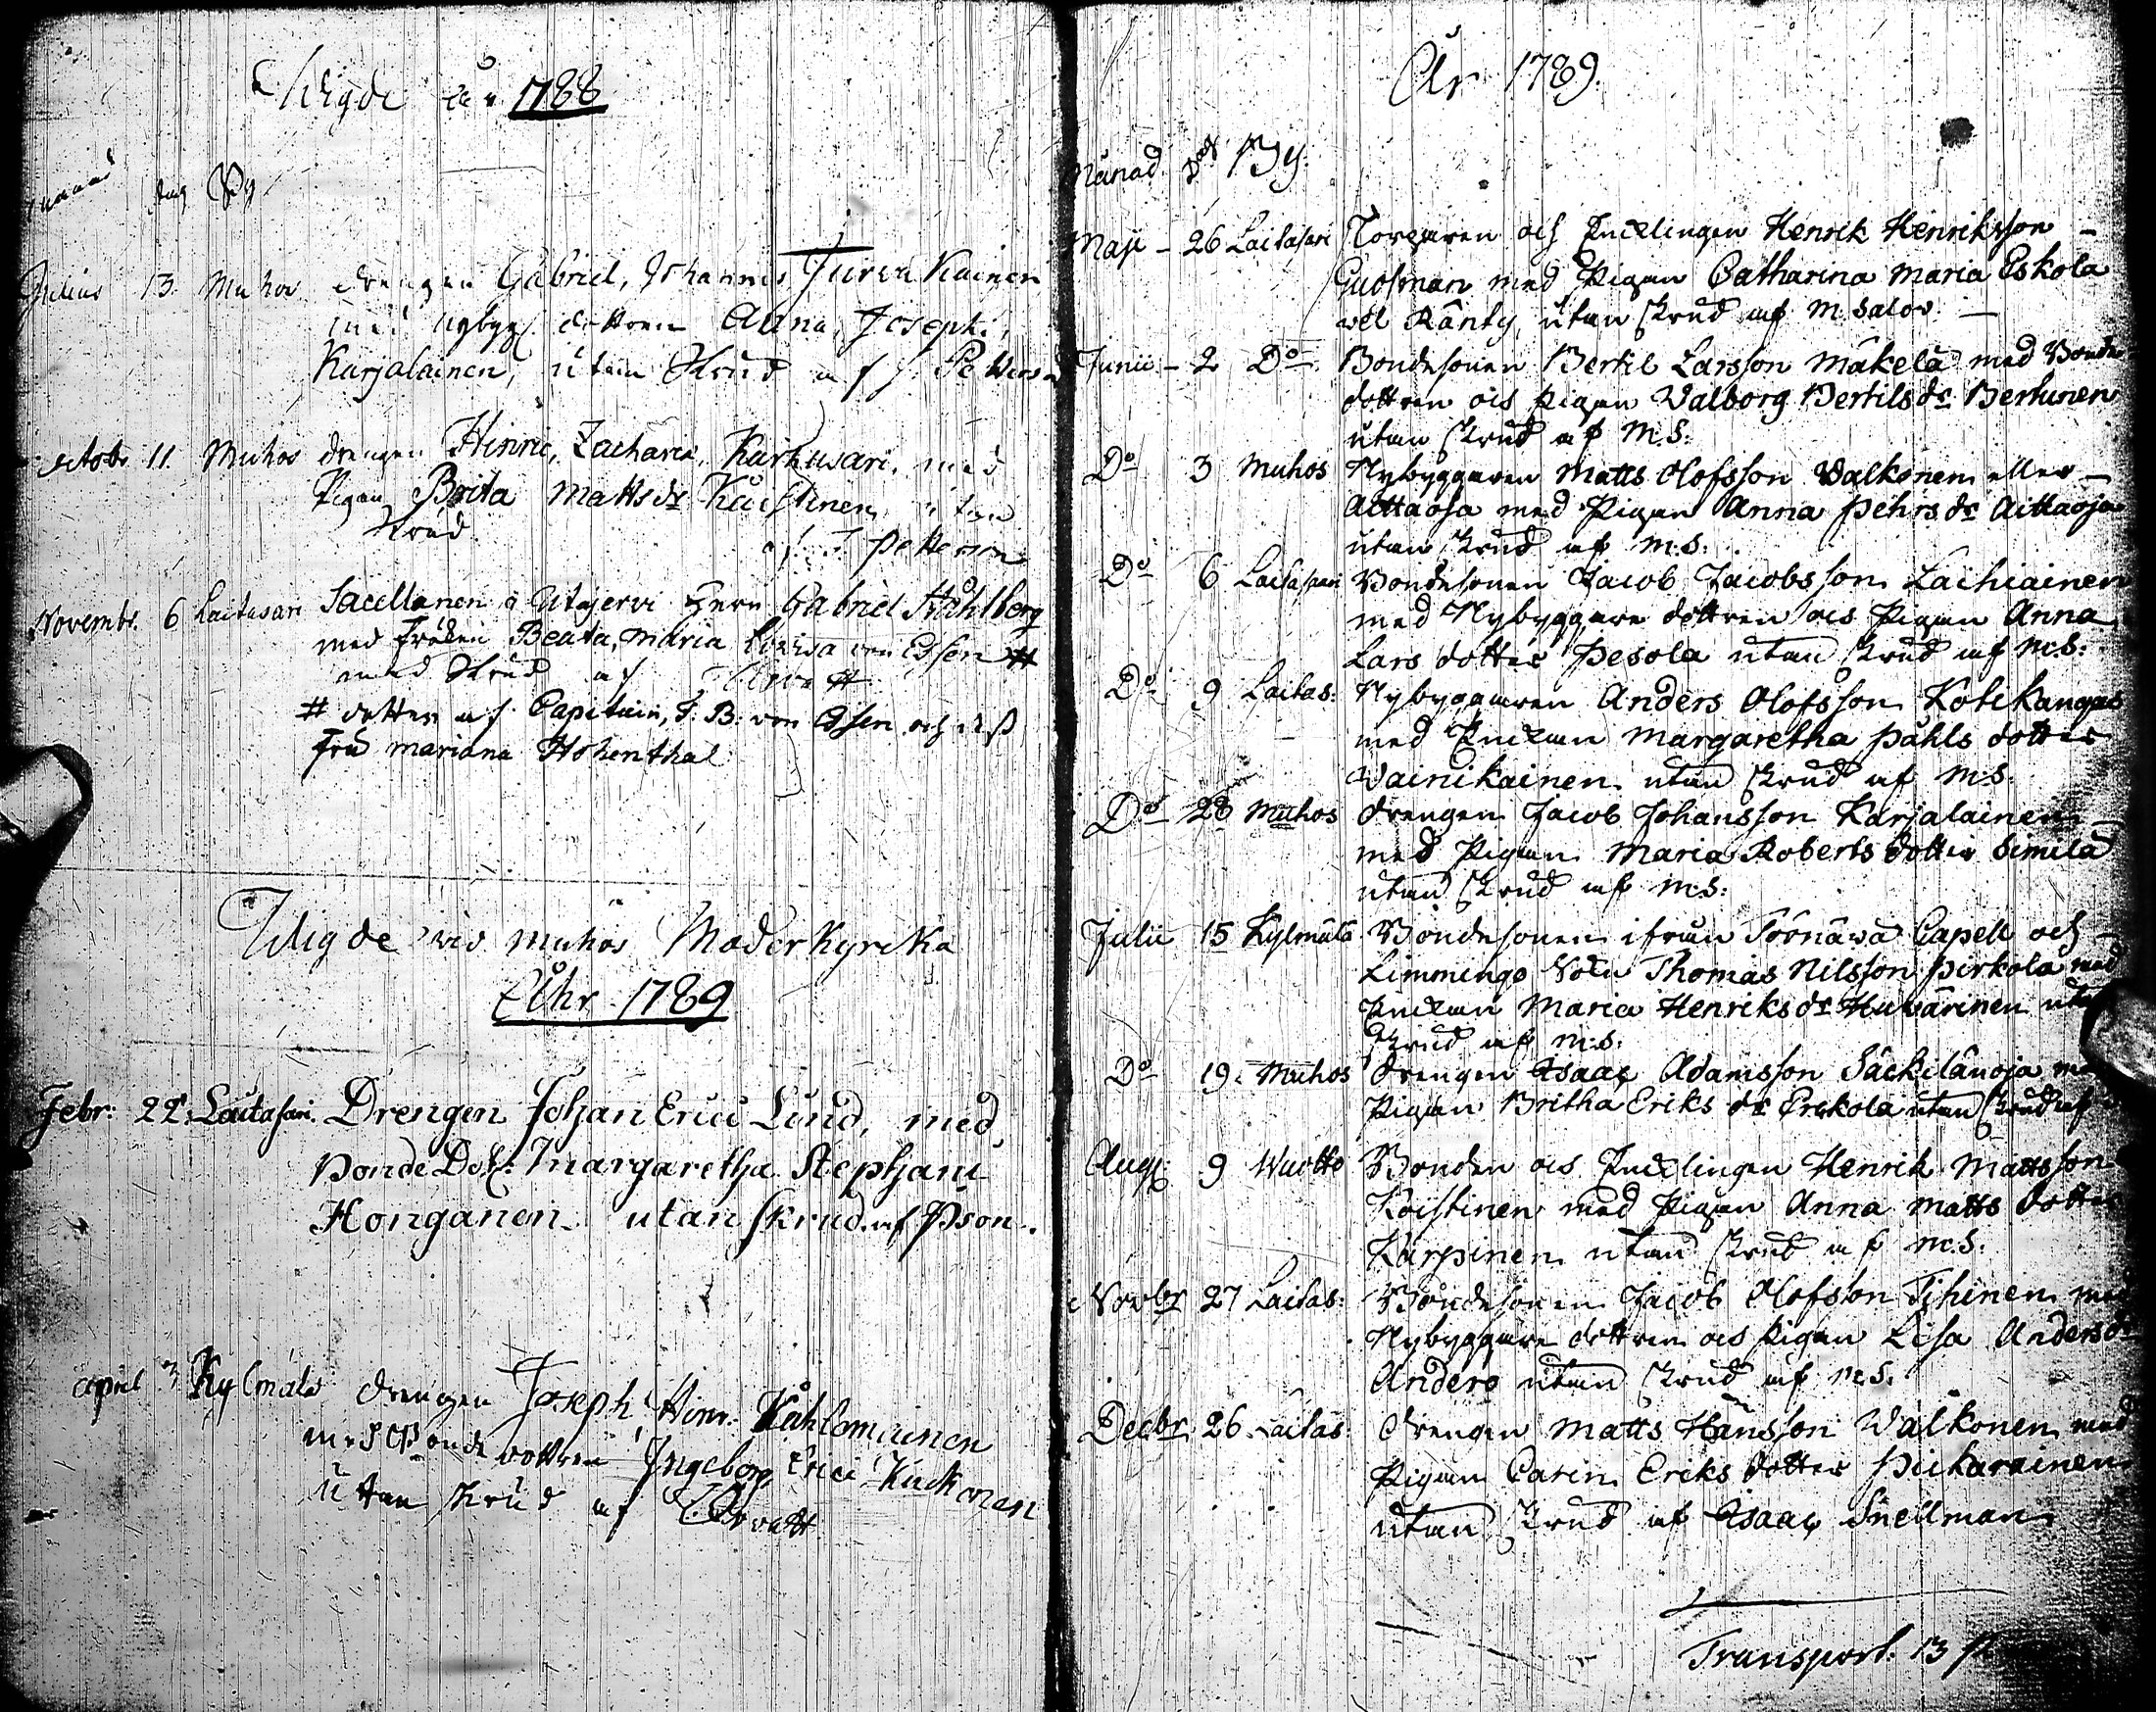 Wigde år 1788
månad dag By
Julius 13. Muhos drengen Gabriel, Johannis, Jurvakainen
med nybygg. dottren Anna, Josephi,
Karjalainen, utan Skrud af J. Petterson
octobr 11. Muhos drengen Hinric, Zacharia, Karhusari, med
Pigan Brita Mattsdr Kaistinen, utan
Skrud
af J. Petterson
Novembr. 6 Laitasari Sacellanen i Utajervi Herr Gabriel Ståhlberg
med Fröken Beata, Maria Lovisa von Essen #
med Skrud af
# dotter af Capitain, F. B. von Essen och dess
Fru Mariana Hohenthal
Wigde vid Muhos Moderkyrcka
Åhr 1789
Febr: 22. Laitasari. Drengen Johan Erici Lund, med
Bonde Dotr: Margaretha Stephani
Honganen utan skrud. af Pson.
april 3 Kylmälä drengen Joseph Henr. Kåhlomainen
med Bonde dottren Ingeborg Erici Kuckonen
Uttan skrud af
År 1789.
Månad. dag By.
Maji - 26 Laitasari Torparen och Encklingen Henrik Henriksson -
Guosman med Pigan Catharina Maria Eskola
vel Ränty, utan skrud af M. Salov. -
Junii - 2 Do Bondesonen Bertil Larsson Mäkelä med Bonde
dottren och Pigan Walborg Bertils dr Bertunen
utan skrud af M.S:
Do 3 Muhos Nybyggaren Matts Olofsson Walkonen eller -
Aittaoja med Pigan Anna Pehrs dr Aittaoja
utan skrud af M.S:
Do 6 Laitasari Bondesonen Jacob Jacobsson Laihiainen
med Nybyggare dottren och Pigan Anna
Lars dotter Pesola utan skrud af M.S:
Do 9 Laitas: Nybyggaren Anders Olofsson Kotikangas
med Enckan Margaretha Påhls dotter
Wainikainen utan skrud af M.S:
Do 28 Muhos drengen Jacob Johansson Karjalainen
med Pigan Maria Roberts dotter Similä
utan skrud af M.S:
Julii 15 Kylmälä Bondesonen ifrån Törnäwä Capell och -
Limmingo Sokn Thomas Nilsson Pirkola med
Enckan Maria Henriks dr Huwärinen utan
skrud af M.S:
Do 19. Muhos drengen Isaac Adamsson Säckilänoja med
Pigan Britha Eriks dr Erckola utan skrud af
Aug: 9 Wuotto Bonden och Encklingen Henrik Mattsson
Koistinen med Pigan Anna Matts dotter
Karpinen utan skrud af M.S:
Novbr 27 Laitas: Bondesonen Jacob Olofsson Tihinen med
Nybyggare dottren och Pigan Lisa Anders dr
Andero utan skrud af M.S.
Decbr 26 Laitas: drengen Matts Hansson Walkonen med
Pigan Carin Eriks dotter Pickarainen
utan skrud af Isaac Snellman
Transport: 13 p